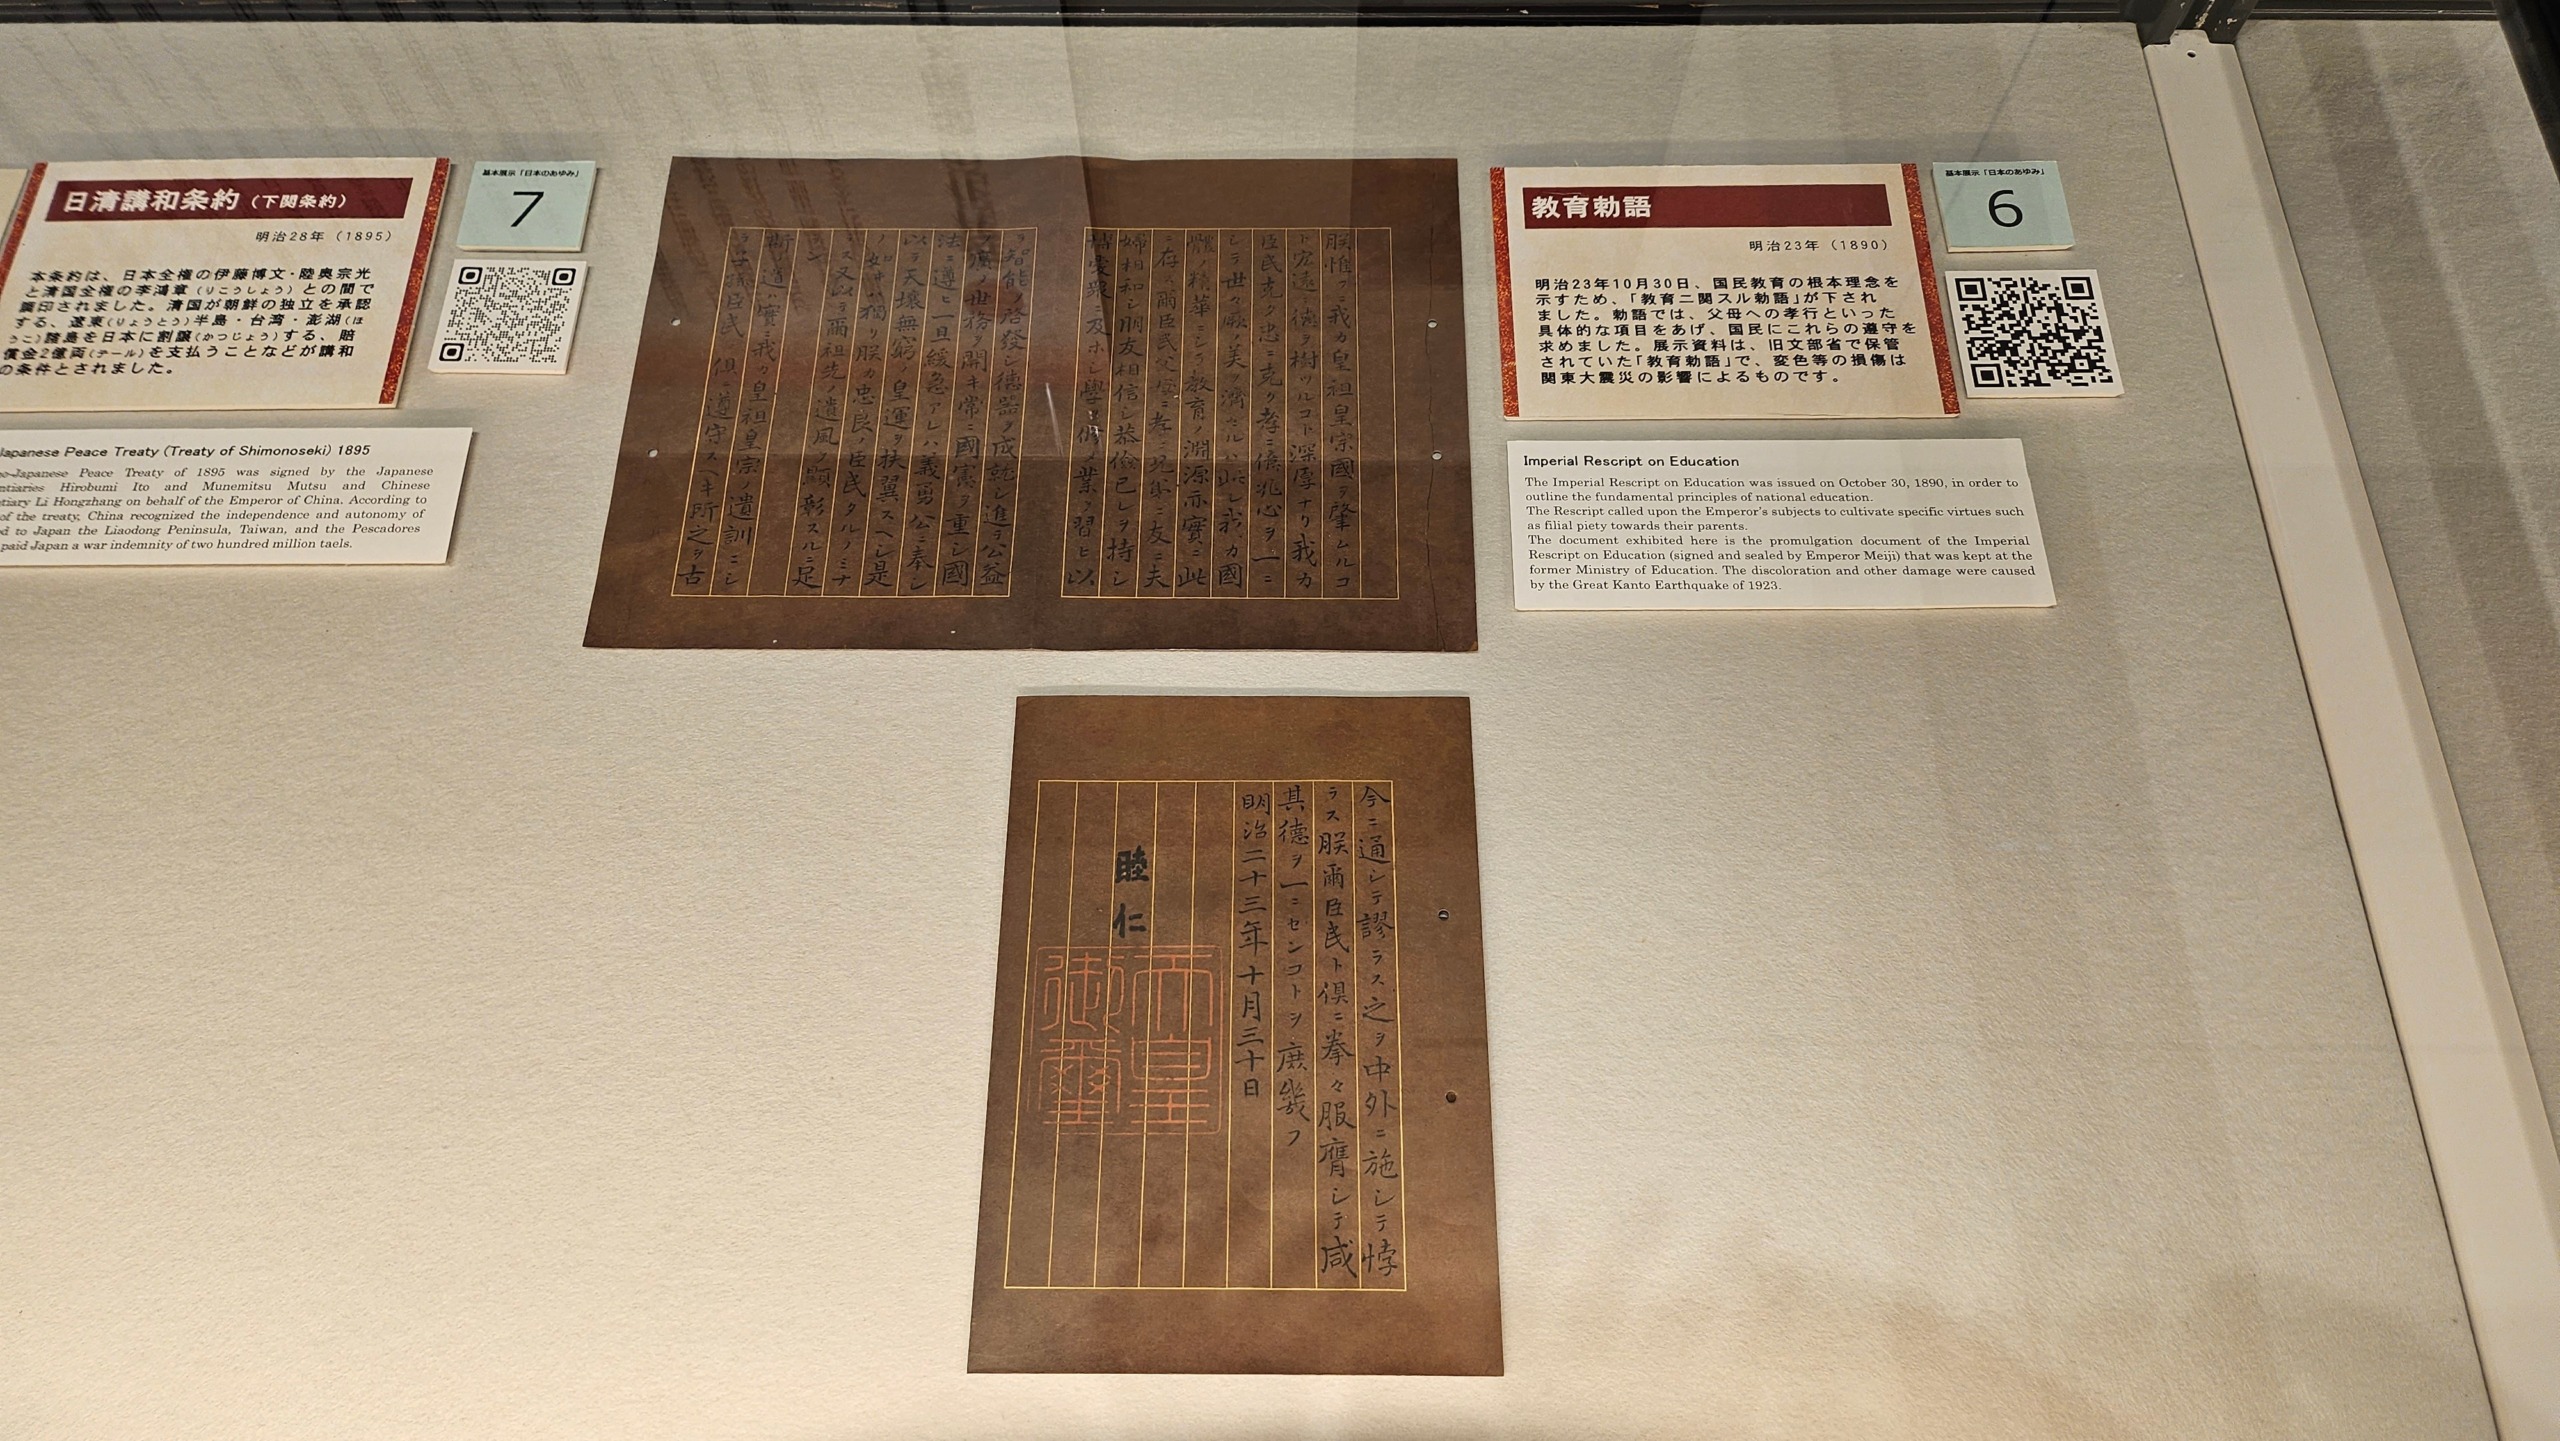 日清講和条約(下関条約)
明治28年(1895)
本条約は、日本全権の伊藤博文・陸奥宗光
と清国全権の李鴻章(りこうしょう)との間で
調印されました。清国が朝鮮の独立を承認
する、遼東(りょうとう)半島・台湾・澎湖(ほ
うこ)諸島を日本に割譲(かつじょう)する、賠
償金2億両(テール)を支払うことなどが講和
の条件とされました。
基本展示「日本のあゆみ」
7
Japanese Peace Treaty (Treaty of Shimonoseki) 1895
o-Japanese Peace Treaty of 1895 was signed by the Japanese
ntiaries Hirobumi Ito and Munemitsu Mutsu and Chinese
tiary Li Hongzhang on behalf of the Emperor of China. According to
of the treaty, China recognized the independence and autonomy of
d to Japan the Liaodong Peninsula, Taiwan, and the Pescadores
paid Japan a war indemnity of two hundred million taels.
朕惟フニ我カ皇祖皇宗國ヲ肇ムルコ
ト宏遠ニ德ヲ樹ツルコト深厚ナリ我カ
臣民克ク忠ニ克ク孝ニ億兆心ヲ一ニ
シテ世々厥ノ美ヲ濟セルハ此レ我カ國
體ノ精華ニシテ教育ノ淵源亦實ニ此
ニ存ス爾臣民父母ニ孝ニ兄弟ニ友ニ夫
婦相和シ朋友相信シ恭儉己レヲ持シ
博愛衆ニ及ホシ學ヲ修メ業ヲ習ヒ以
テ智能ヲ啓發シ德器ヲ成就シ進テ公益
ヲ廣メ世務ヲ開キ常ニ國憲ヲ重シ國
法ニ遵ヒ一旦緩急アレハ義勇公ニ奉シ
以テ天壤無窮ノ皇運ヲ扶翼スヘシ是
ノ如キハ獨リ朕カ忠良ノ臣民タルノミナ
ラス又以テ爾祖先ノ遺風ヲ顯彰スルニ足
ラン
斯ノ道ハ實ニ我カ皇祖皇宗ノ遺訓ニシ
テ子孫臣民ノ俱ニ遵守スヘキ所之ヲ古
今ニ通シテ謬ラス之ヲ中外ニ施シテ悖
ラス朕爾臣民ト俱ニ拳々服膺シテ咸
其德ヲ一ニセンコトヲ庶幾フ
明治二十三年十月三十日
睦仁
天皇
御璽
教育勅語
明治23年(1890)
明治23年10月30日、国民教育の根本理念を
示すため、「教育ニ関スル勅語」が下され
ました。勅語では、父母への孝行といった
具体的な項目をあげ、国民にこれらの遵守を
求めました。展示資料は、旧文部省で保管
されていた「教育勅語」で、変色等の損傷は
関東大震災の影響によるものです。
基本展示「日本のあゆみ」
6
Imperial Rescript on Education
The Imperial Rescript on Education was issued on October 30, 1890, in order to
outline the fundamental principles of national education.
The Rescript called upon the Emperor's subjects to cultivate specific virtues such
as filial piety towards their parents.
The document exhibited here is the promulgation document of the Imperial
Rescript on Education (signed and sealed by Emperor Meiji) that was kept at the
former Ministry of Education. The discoloration and other damage were caused
by the Great Kanto Earthquake of 1923.